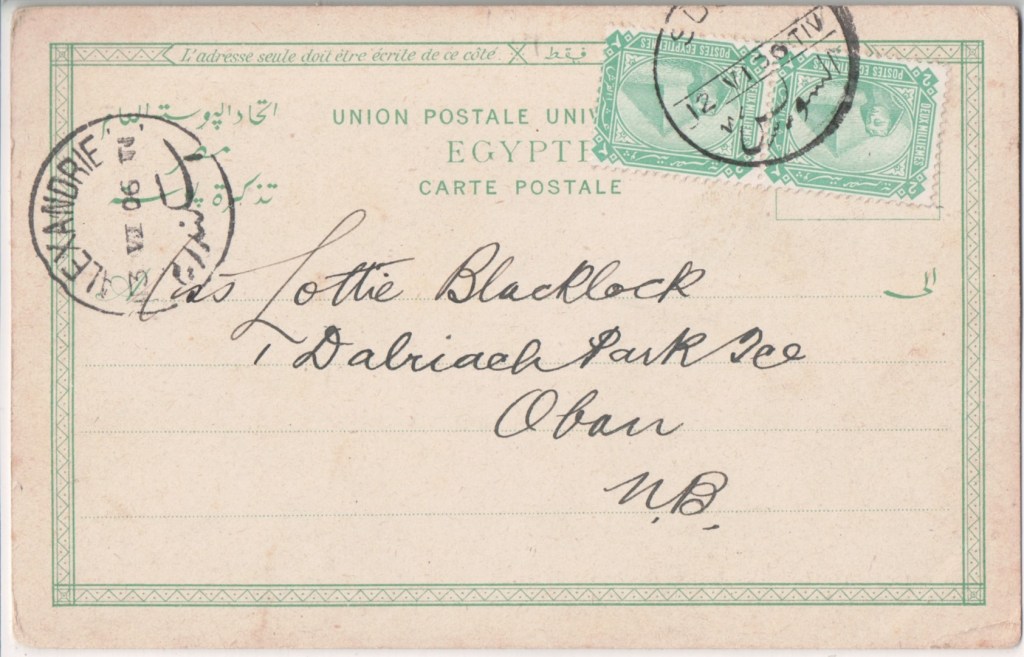 L'adresse seule doit être écrite de ce côté فقط
اتحاد البوستة
UNION POSTALE UNIV
مصر
EGYPTE
تذكرة
CARTE POSTALE
POSTES EGYPTIE
DEUX MILLIEMES
POSTES EGYPTI
DEUX MILLIEMES
12 VI 30 TIV
السويس
ALEXANDRIE
13 VI 06
الى
Miss Lottie Blacklock
1 Dalriach Park Tce
Oban
N.B.